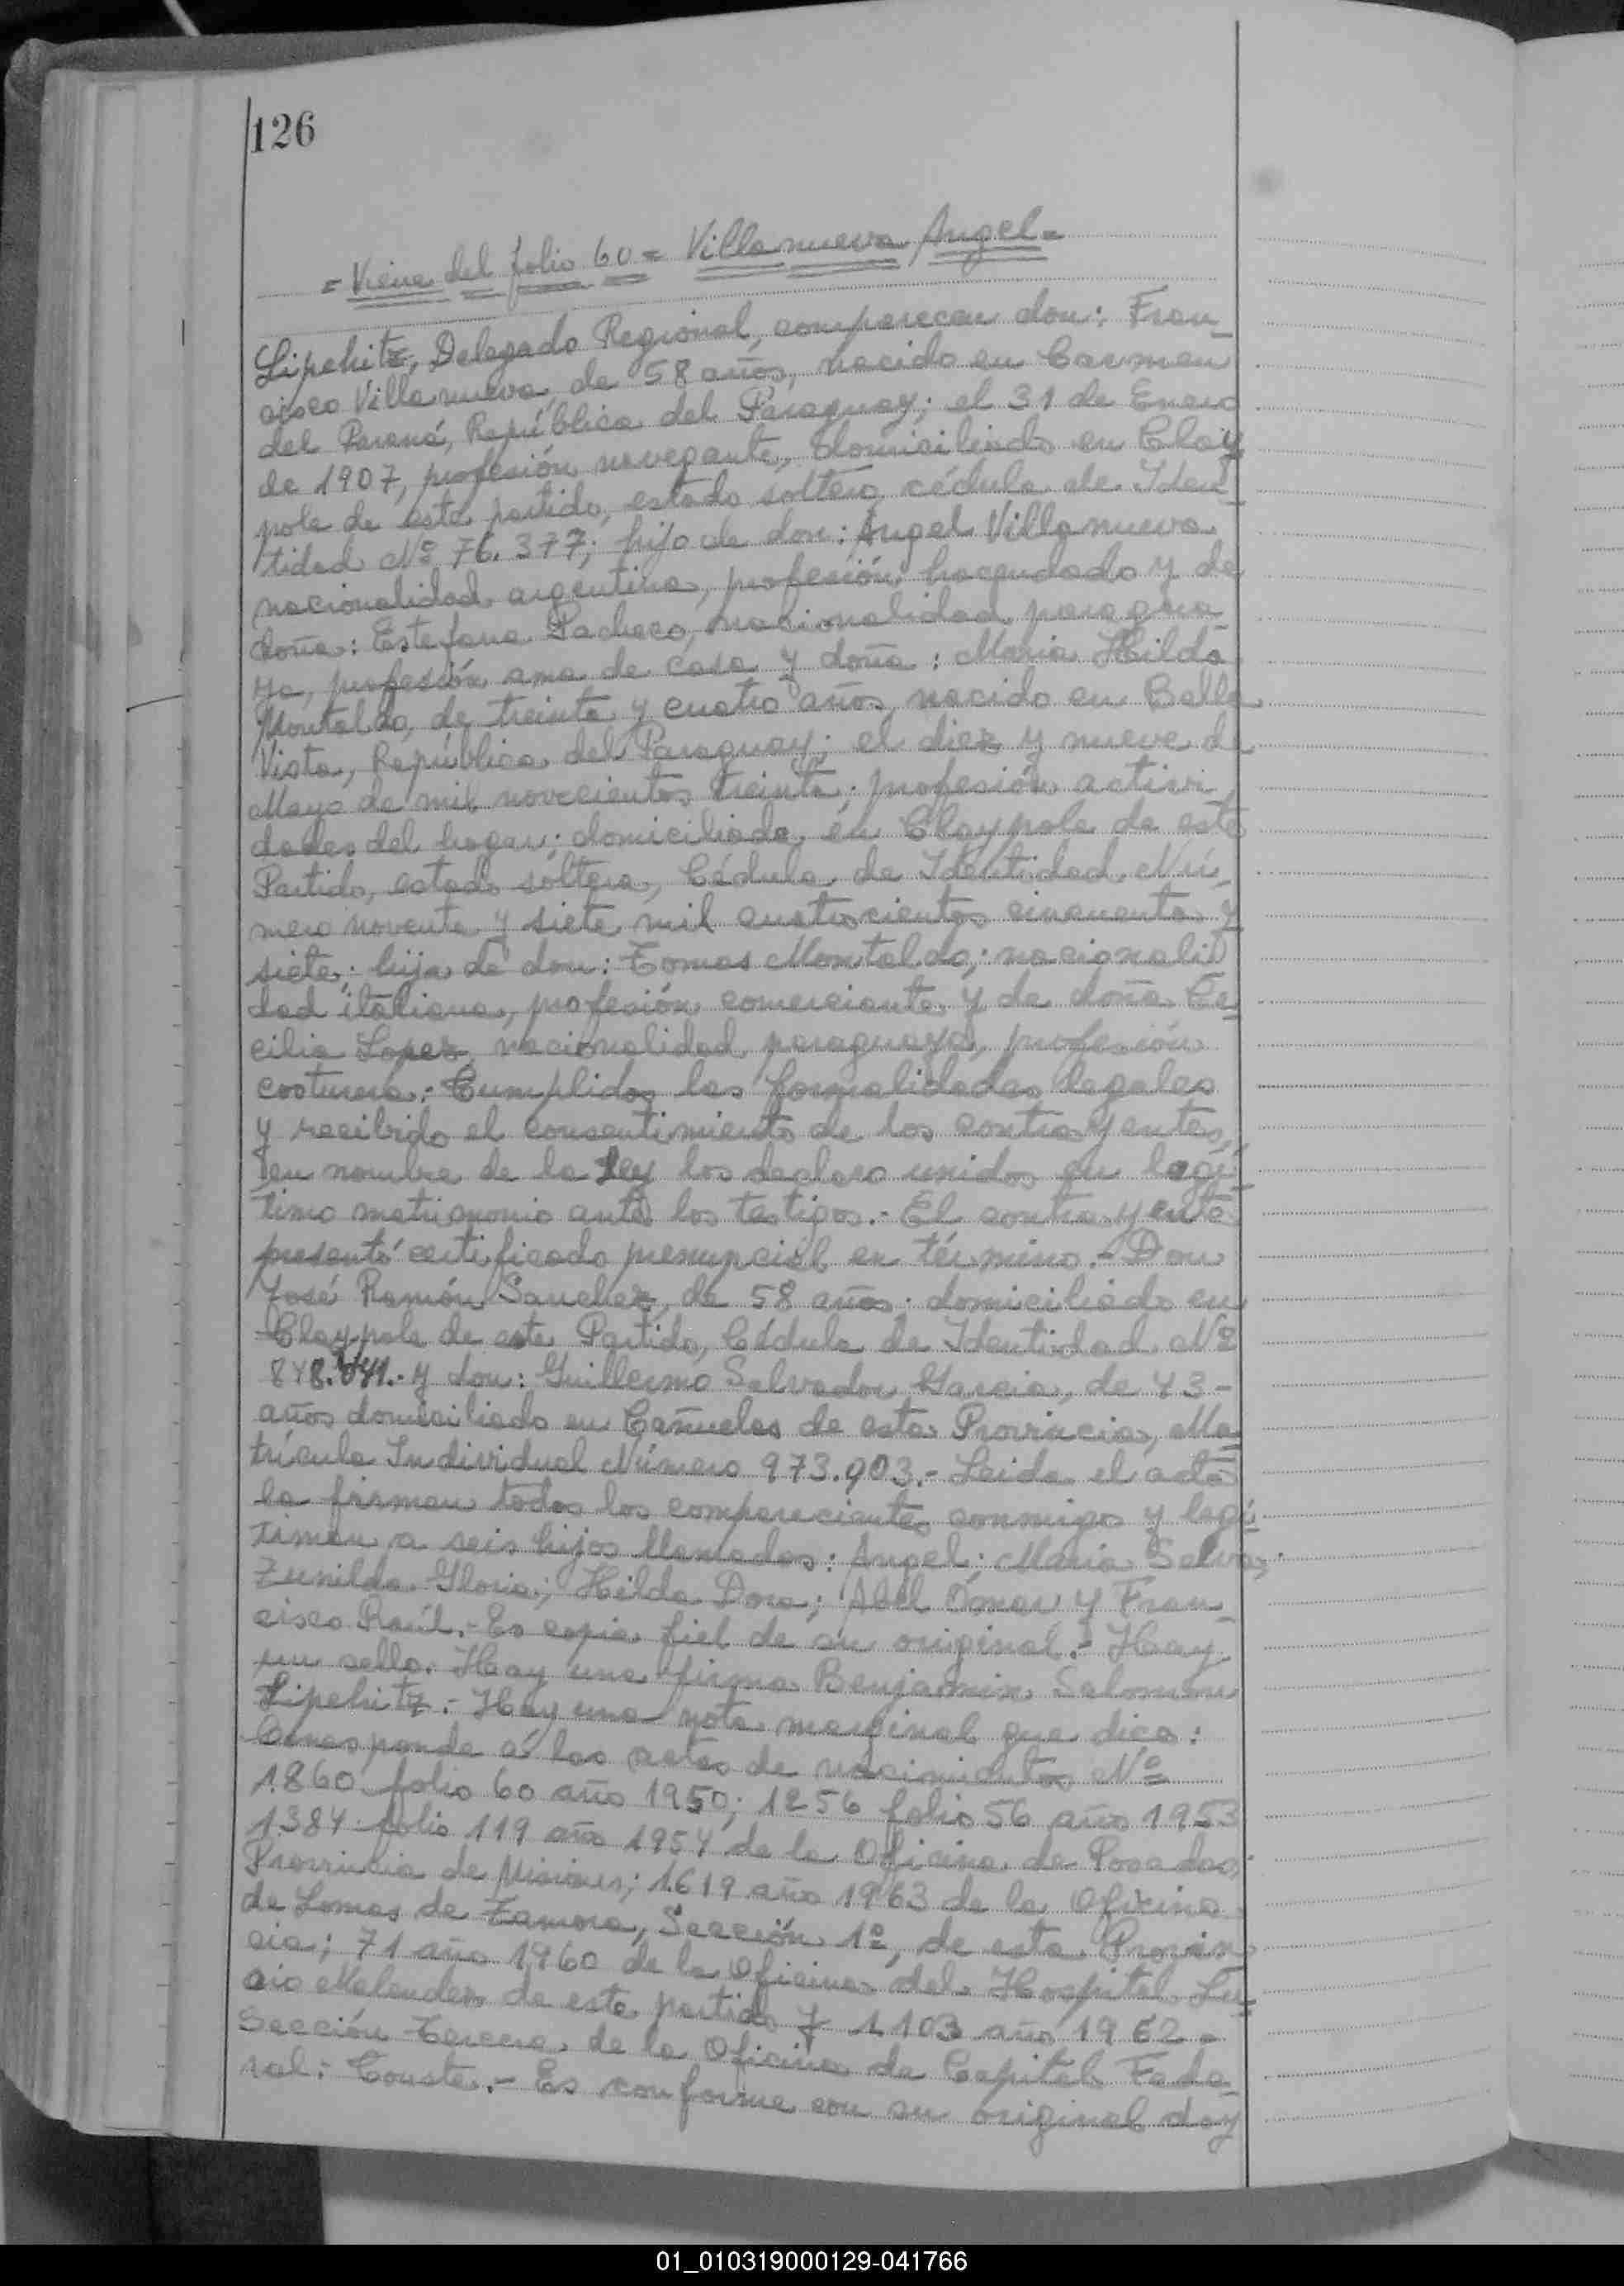 126
= Viene del folio 60 = Villanueva Angel =
Lipchitz, Delegado Regional, comparecen don: Fran_
cisco Villanueva, de 58 años, nacido en Carmen
del Paraná, República del Paraguay; el 31 de Enero
de 1907, profesión navegante, domiciliado en Clay
pole de este partido, estado soltero, cédula de Iden_
tidad Nº 76.377; hijo de don: Angel Villanueva
nacionalidad argentina, profesión hacendado y de
doña: Estefana Pacheco, nacionalidad paragua_
ya, profesión ama de casa y doña: Maria Hilda
Montaldo, de treinta y cuatro años, nacido en Bella
Vista, República del Paraguay; el diez y nueve de
Mayo de mil novecientos treinta; profesión activi
dades del hogar; domiciliada en Claypole de este
Partido, estado soltera, Cédula de Identidad Nú_
mero noventa y siete mil cuatrocientos cincuenta y
siete; hija de don: Tomas Montaldo; nacionali
dad italiana, profesión comerciante y de doña Ce_
cilia Lopez, nacionalidad paraguaya, profesión
costurera.- Cumplidos las formalidades legales
y recibido el consentimiento de los contrayentes,
en nombre de la Ley los declaro unidos en legí_
timo matrimonio ante los testigos.- El contrayente
presentó certificado prenupcial en término.- Don
José Ramón Sanchez, de 58 años; domiciliado en
Claypole de este Partido, Cédula de Identidad Nº
y don: Guillermo Salvador Garcia, de 43-
años domiciliado en Cañuelas de esta Provincia, Ma_
trícula Individual Número 973.903.- Leida el acta
la firman todos los comparecientes conmigo y legi_
timan a seis hijos llamados: Angel; Maria Selva;
Zunilda Gloria; Hilda Dora; Abel Omar y Fran_
cisco Raúl.- Es copia fiel de su original.- Hay
un sello. Hay una firma Benjamin Salomon
Lipchitz.- Hay una nota marginal que dice:
Corresponde a las actas de nacimientos Nº
1.860 folio 60 año 1950; 1256 folio 56 año 1953
1384 folio 119 año 1954 de la Oficina de Posadas,
Provincia de Misiones; 1.619 año 1963 de la Oficina
de Lomas de Zamora, Sección 1º, de esta Provin_
cia; 71 año 1960 de la Oficina del Hospital Lu_
cio Melendez de este partido y 1.103 año 1962 -
Sección Tercera de la Oficina de Capital Fede_
ral: Conste.- Es conforme con su original doy
01_010319000129-041766